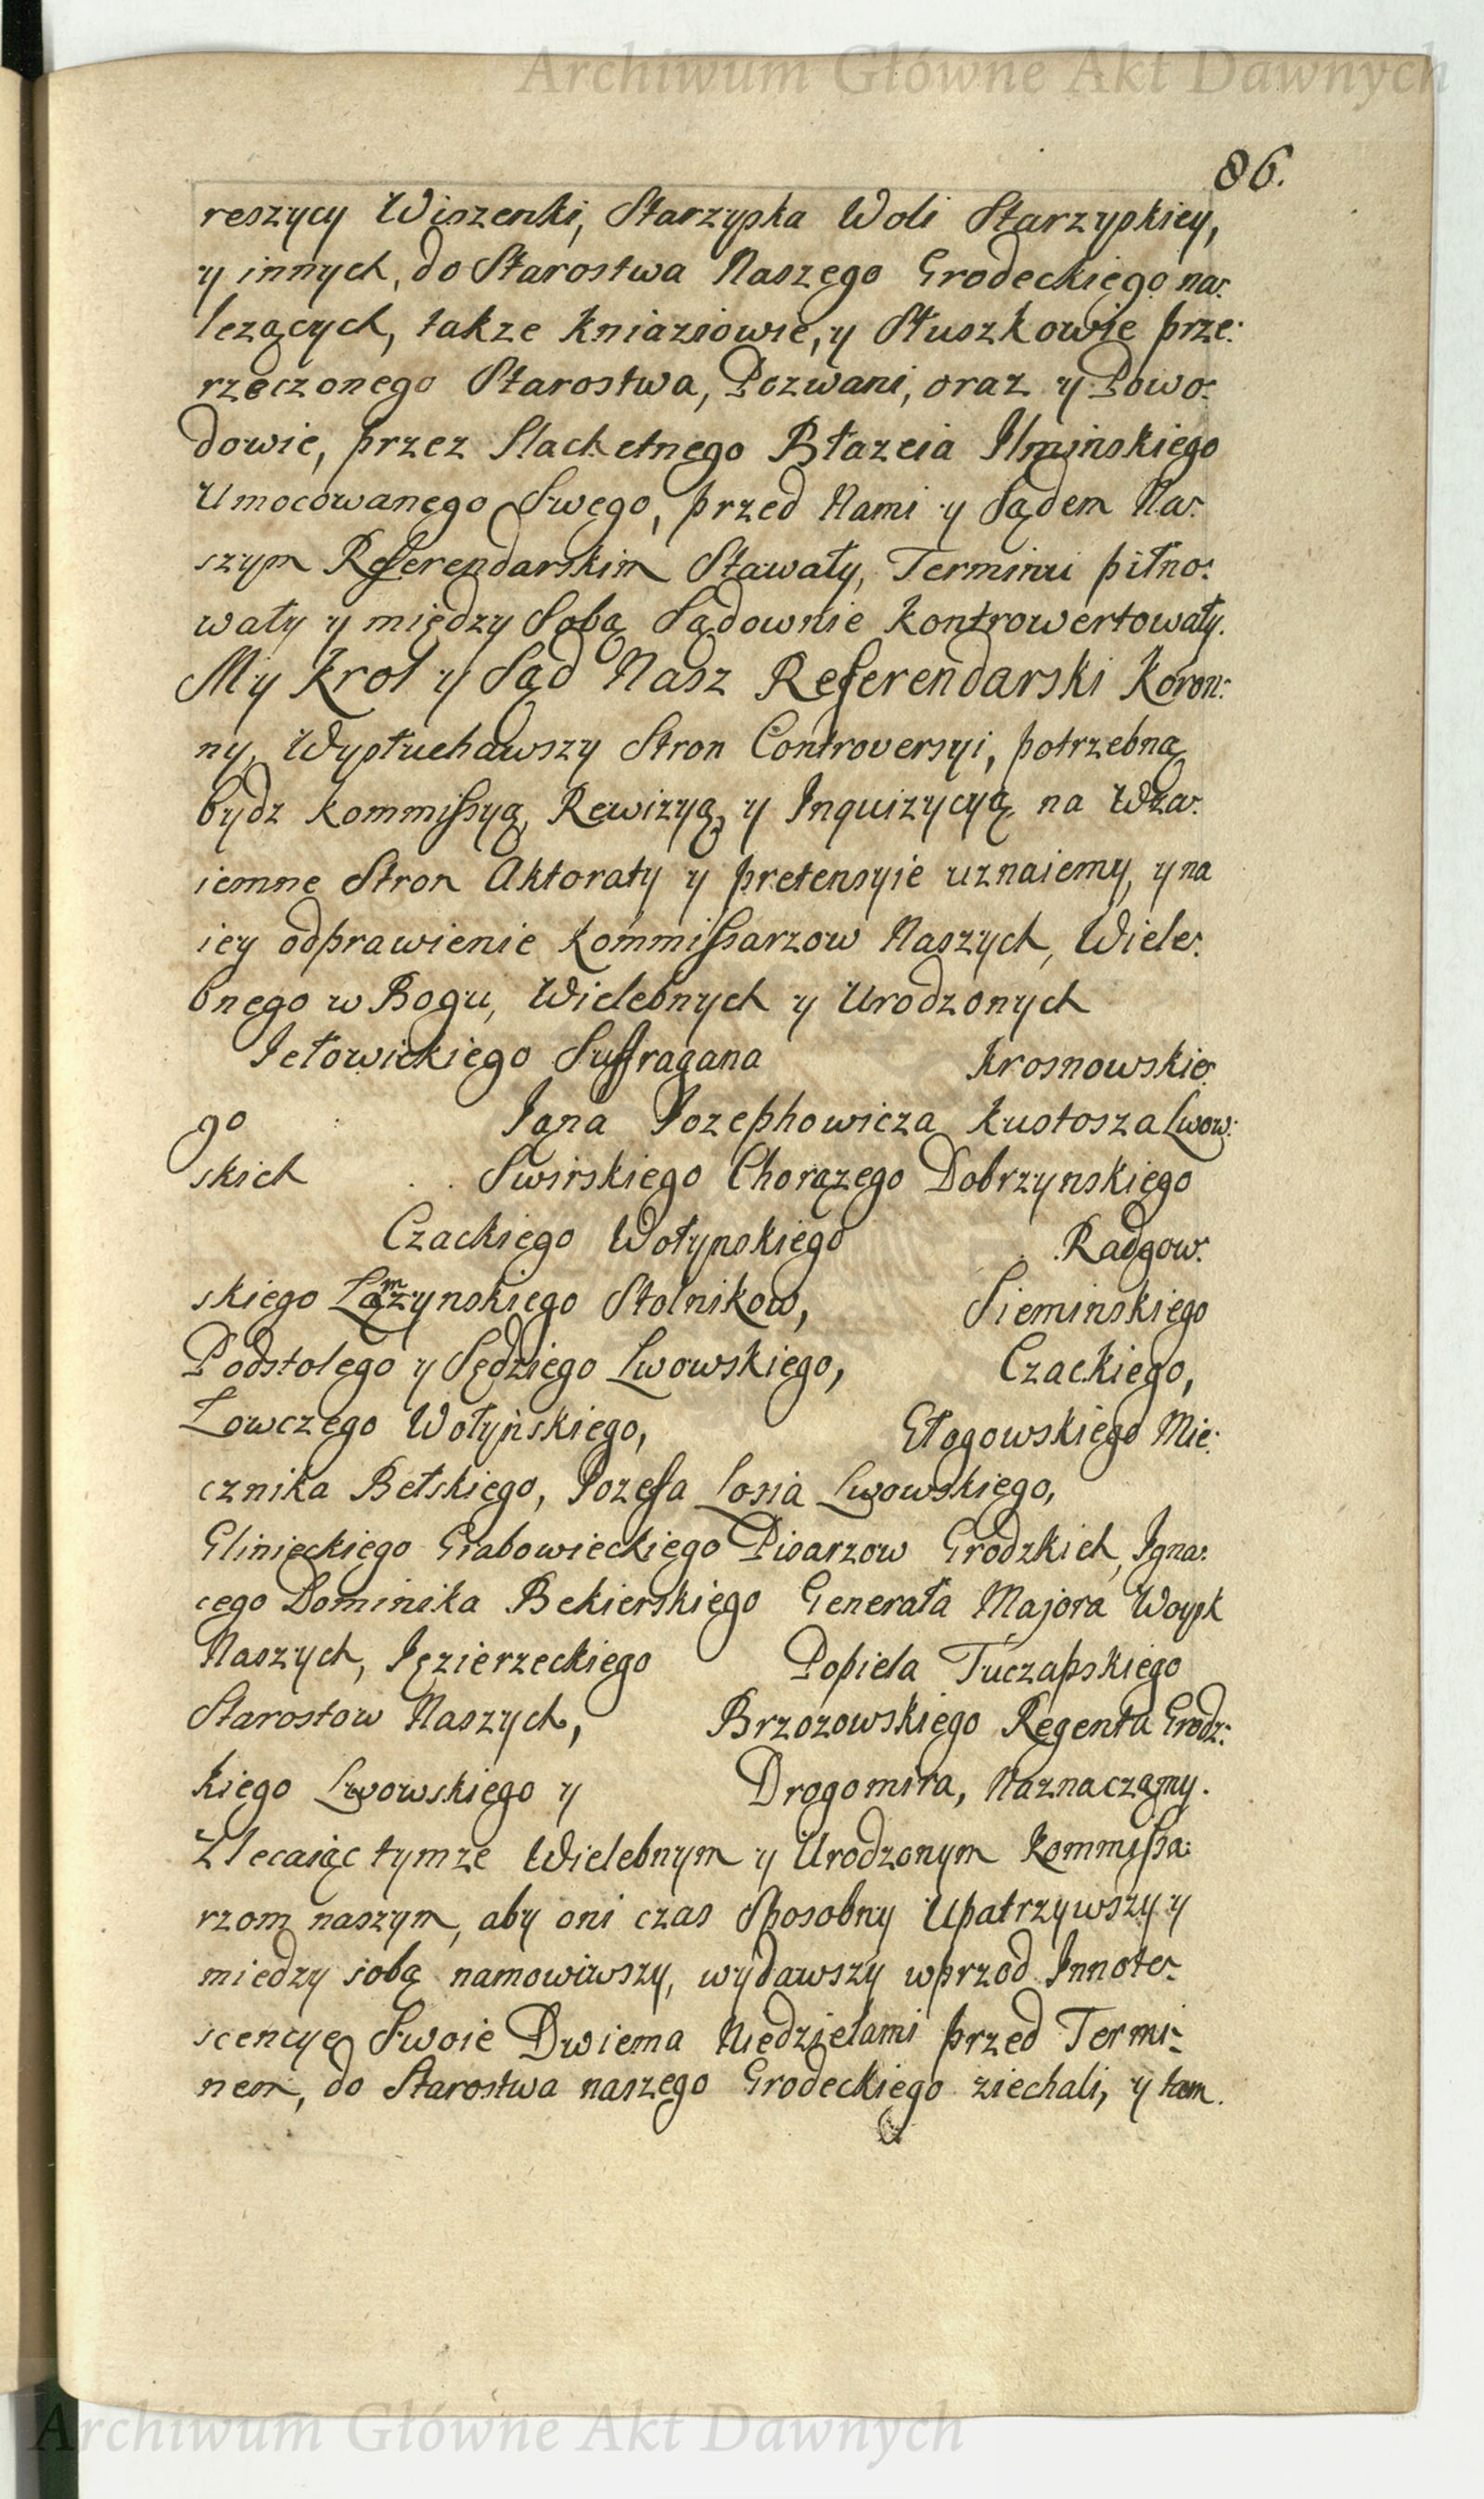 Archiwum Główne Akt Dawnych
86.
reszycy Wiszenki, Starzyska Woli Starzyskiey,
y innych, do Starostwa Naszego Grodeckiego na:
lezących, takze Kniaziowie, y Stuszkowie prze:
rzeczonego Starostwa, Pozwani, oraz y Powo:
dowie, przez Slachetnego Błazeia Ilminskiego
Umocowanego Swego, przed Nami y Sądem Na:
szym Referendarskim Stawały, Terminu pilno:
wały y między Sobą Sądownie Kontrowertowały.
My Krol y Sąd Nasz Referendarski Koron:
ny, Wysłuchawszy Stron Controversyi, potrzebną
bydz Kommissyą, Rewizyą, y Inquizycyą na Wza:
iemne Stron Aktoraty y pretensyie uznaiemy, y na
iey odprawienie Kommissarzow Naszych, Wiele:
bnego w Bogu, Wielebnych y Urodzonych
Jełowickiego Suffragana Krosnowskie:
go Jana Jozephowicza Kustosza Lwow:
skich Swirskiego Chorązego Dobrzynskiego
Czackiego Wołynskiego Radgow:
skiego Stolnikow, Sieminskiego
Podstolego y Sędziego Lwowskiego, Czackiego,
Łowczego Wołyńskiego, Głogowskiego Mie:
cznika Bełskiego, Jozefa Łosia Lwowskiego,
Glinieckiego Grabowieckiego Pisarzow Grodzkich, Igna:
cego Dominika Bekierskiego Generała Majora Woysk
Naszych, Jęzierzeckiego Popiela Tuczapskiego
Starostow Naszych, Brzozowskiego Regenta Grodz:
kiego Lwowskiego y Drogomira, Naznaczamy.
Zlecaiąc tymze Wielebnym y Urodzonym Kommissa:
rzom naszym, aby oni czas Sposobny Upatrzywszy y
miedzy sobą namowiwszy, wydawszy wprzod Innote:
scencye Swoie Dwiema Niedzielami przed Termi:
nem, do Starostwa naszego Grodeckiego ziechali, y tam.
Archiwum Główne Akt Dawnych